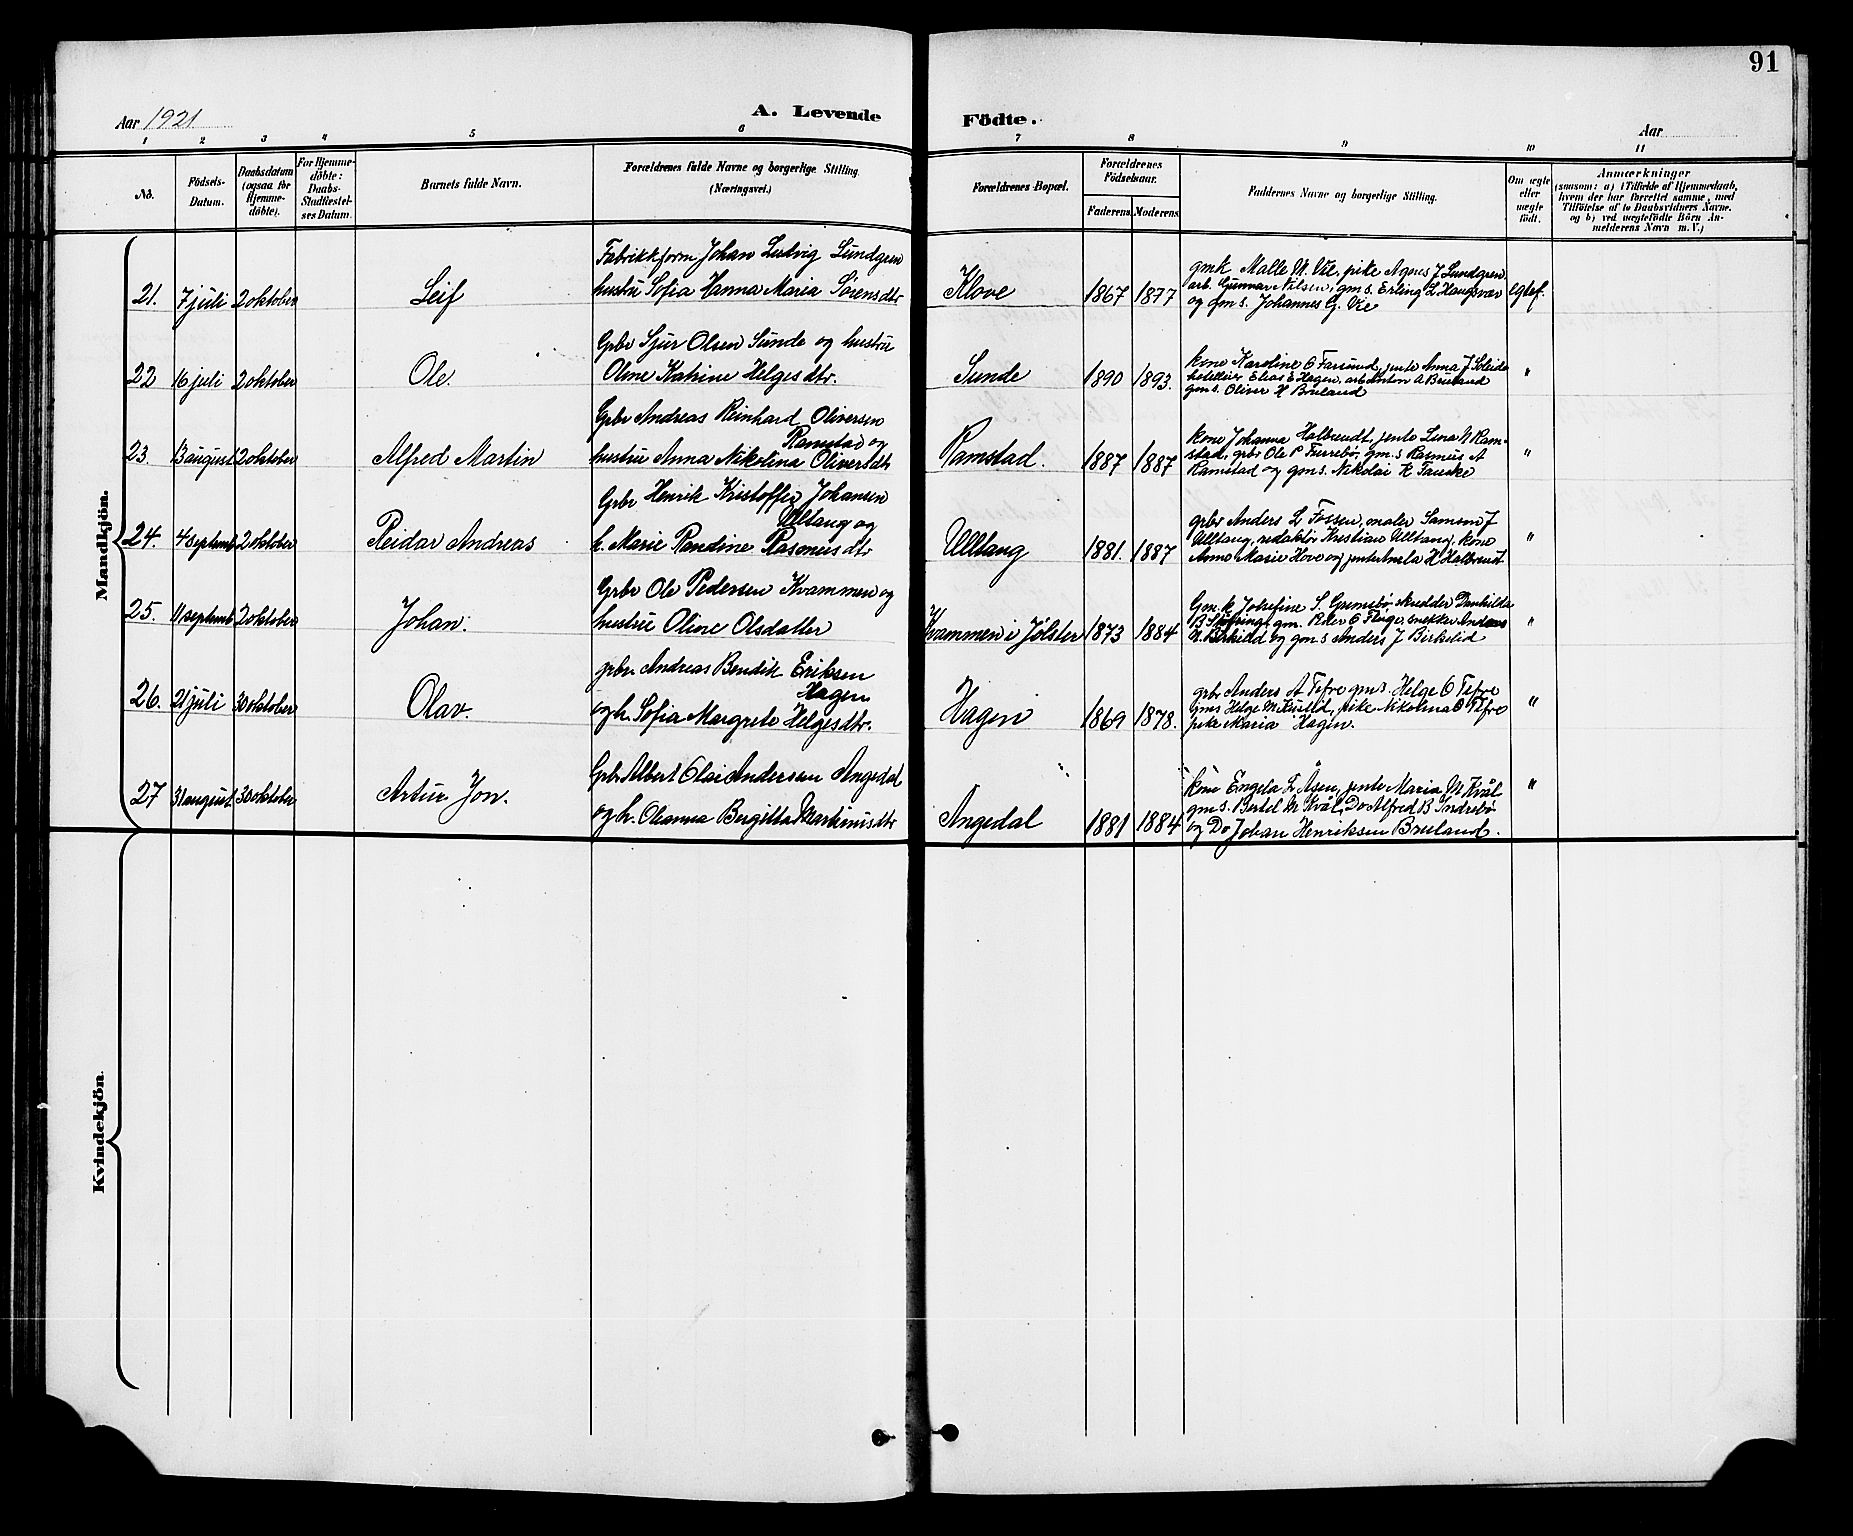 91
Aar 1921
A. Levende Födte.
Aar
1 2 3 4 5 6 7 8 9 10 11
No.
Födsels-Datum.
Daabsdatum (ogsaa for Hjemme-döbte).
For Hjemme-döbte: Daabs-Stadfæstel-ses Datum.
Barnets fulde Navn.
Forældrenes fulde Navne og borgerlige Stilling (Næringsvei.)
Forældrenes Bopæl.
Forældrenes Födselsaar.
Faderens. Moderens.
Faddernes Navne og borgerlige Stilling.
Om ægte eller uægte født.
Anmærkninger
(saasom: a) i Tilfælde af Hjemmedaab,
hvem der har forrettet samme, med
Tilföielse af to Daabsvidners Navne.
og b) ved uægtefödte Börn An-
melderens Navn m. V.)
Mandkjön.
21. 7 juli 2 oktober Leif
Fabrikkform Johan Ludvig Lundgren
hustru Sofia Hanna Maria Sörensdtr
Klove 1867 1877
gmk Malle N. Vie, pike Agnes J Lundgren
arb. Gunnar Nilsen, gms. Erling L Haugsvær
og gms. Johannes G. Vie
egtef.
22 16 juli 2 oktober Ole.
Grbr Sjur Olsen Sunde og hustru
Oline Katrine Helgesdtr.
Sunde 1890 1893.
kone Karoline O Farsund, jente Anna J Solheim
hotelleier Elias E Hagen, arb Anton A Bruland
gms. Oliver H Bruland
"
23. 13 august 2 oktober Alfred Martin
Grbr Andreas Reinhard Oliversen
Ramstad og
hustru Anna Nikolina Oliversdtr
Ramstad. 1887 1887
kone Johanna Halbrendt, jente Lina N Ram-
stad, grbr Ole P Furrebö, gms Rasmus A
Ramstad og gms. Nikolai K Fauske
"
24. 4 septemb 2 oktober Reidar Andreas
Grbr Henrik Kristoffer Johansen
Ulltang og
h. Marie Randine Rasmusdtr
Ulltang 1881. 1887
grbr Anders L Fossen, maler Samson J
Ulltang, redaktör Kristian Ulltang, kone
Anna Marie Hove og jente H Halbrendt
"
25. 11 septemb 2 oktober Johan.
Grbr Ole Pedersen Kvammen og
hustru Oline Olsdatter
Kvammen i Jölster 1873 1884
Gm.k Josefine S. skredder
gm. Peder O snekker Anders
N. Birkelid og gms Anders J Birkelid
"
26. 21 juli 30 oktober Olav.
grbr Andreas Bendik Eriksen
Hagen
og h. Sofia Margrete Helgesdtr.
Hagen 1869 1878.
grbr Anders A Tefre gms. Helge O Tefre
gms Helge M pike Nikolina O Tefre
pike Maria Hagen.
"
27 31 august 30 oktober Artur Jon.
Grbr Albert Olai Andersen Angedal
og h. Oleanna Bergitta Markusdtr
Angedal 1881 1884
kone Engela L Åsen, jente Maria M Kvål
gms. Bertel M Kvål, Do Alfred B Indrebö
og Do Johan Henriksen Bruland.
"
Kvindekjön.